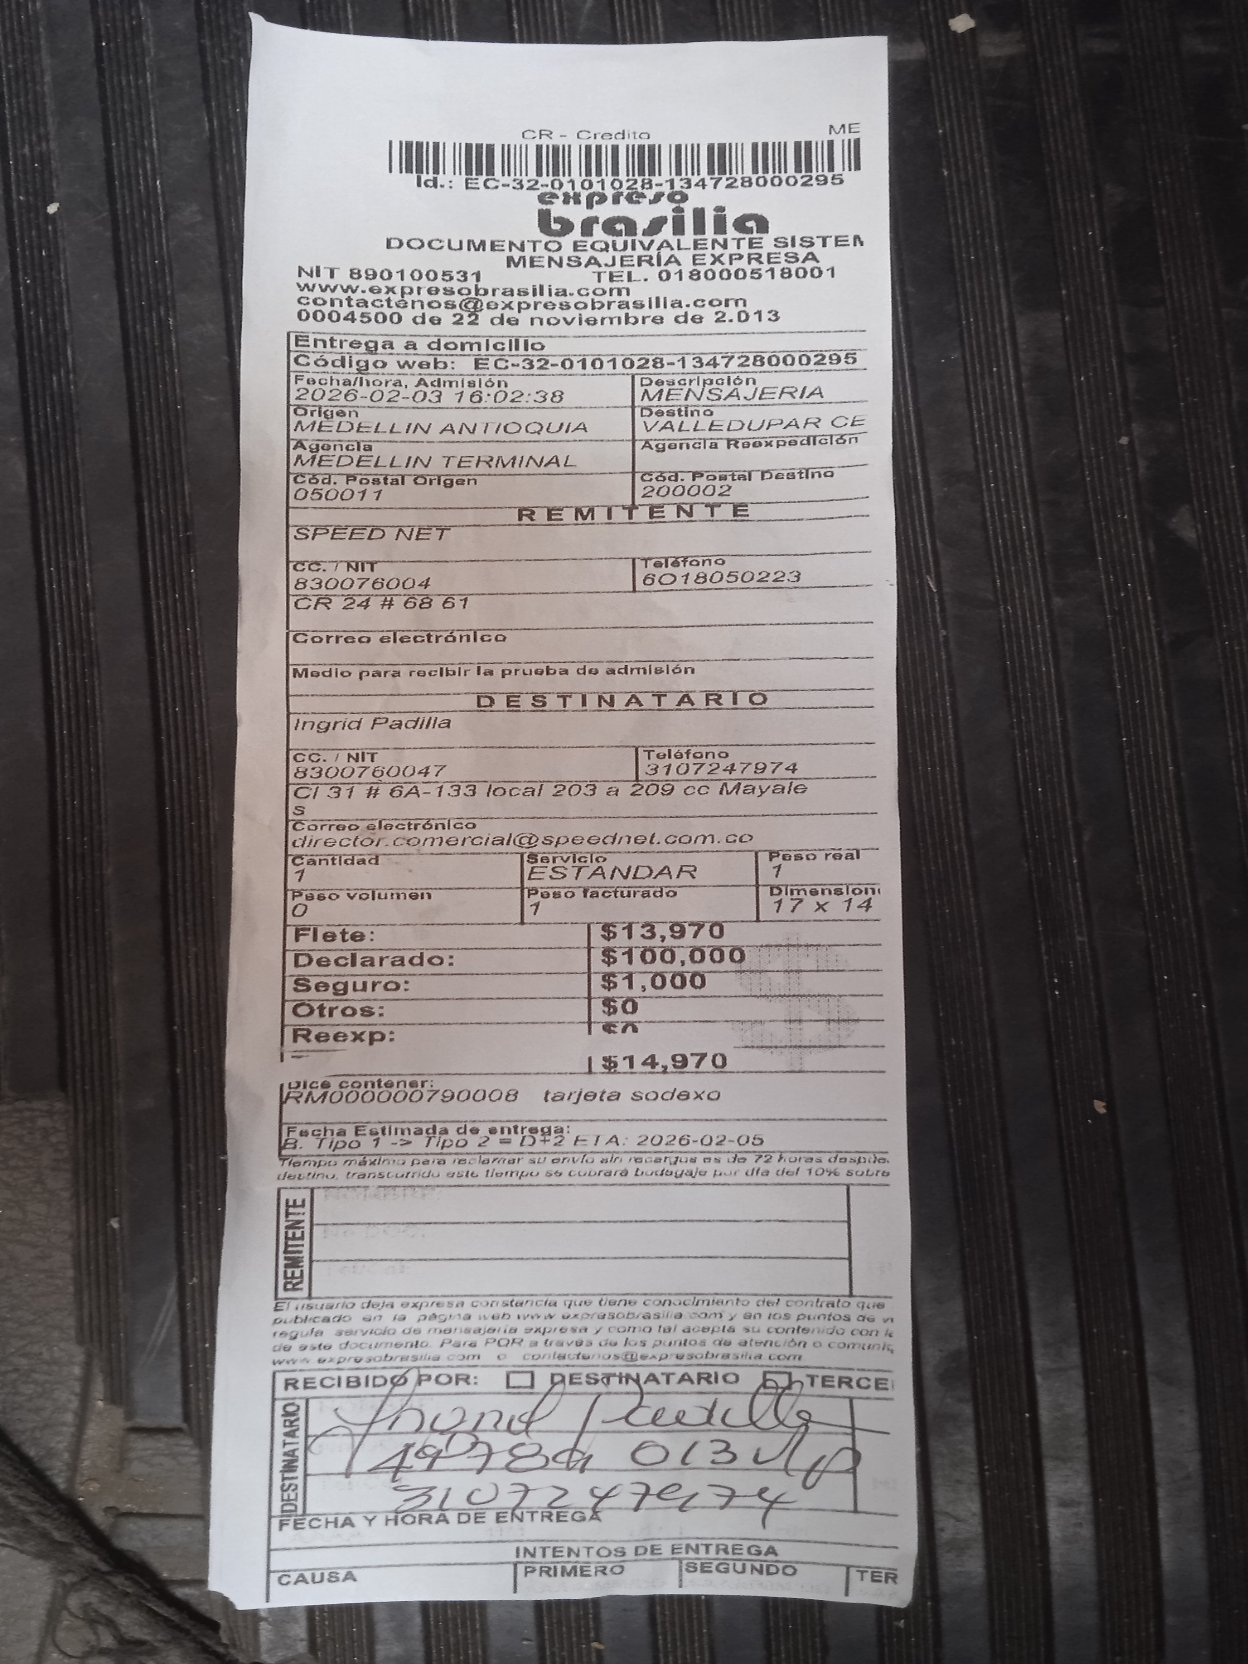 CR - Credito ME
Id.: EC-32-0101028-134728000295
expreso
brasilia
DOCUMENTO EQUIVALENTE SISTEM
MENSAJERÍA EXPRESA
NIT 890100531 TEL. 018000518001
www.expresobrasilia.com
contactenos@expresobrasilia.com
0004500 de 22 de noviembre de 2.013
Entrega a domicilio
Código web: EC-32-0101028-134728000295
Fecha/hora, Admisión Descripción
2026-02-03 16:02:38 MENSAJERIA
Origen Destino
MEDELLIN ANTIOQUIA VALLEDUPAR CE
Agencia Agencia Reexpedición
MEDELLIN TERMINAL
Cód. Postal Origen Cód. Postal Destino
050011 200002
REMITENTE
SPEED NET
CC. / NIT Teléfono
830076004 6018050223
CR 24 # 68 61
Correo electrónico
Medio para recibir la prueba de admisión
DESTINATARIO
Ingrid Padilla
CC. / NIT Teléfono
8300760047 3107247974
Cl 31 # 6A-133 local 203 a 209 cc Mayale
s
Correo electrónico
director.comercial@speednet.com.co
Cantidad Servicio Peso real
1 ESTANDAR 1
Peso volumen Peso facturado Dimension
0 1 17 x 14
Flete: $13,970
Declarado: $100,000
Seguro: $1,000
Otros: $0
Reexp: $0
$14,970
Dice contener:
RM000000790008 tarjeta sodexo
Fecha Estimada de entrega:
B. Tipo 1 -> Tipo 2 = D+2 ETA: 2026-02-05
Tiempo máximo para reclamar su envío sin recargos es de 72 horas después
destino, transcurrido este tiempo se cobrará bodegaje por día del 10% sobre
REMITENTE
El usuario deja expresa constancia que tiene conocimiento del contrato que
publicado en la página web www.expresobrasilia.com y en los puntos de v
regula servicio de mensajería expresa y como tal acepta su contenido con l
de este documento. Para PQR a través de los puntos de atención o comuni
www.expresobrasilia.com o contactenos@expresobrasilia.com
RECIBIDO POR: DESTINATARIO TERCE
DESTINATARIO
Padilla
013
3107247974
FECHA Y HORA DE ENTREGA
INTENTOS DE ENTREGA
CAUSA PRIMERO SEGUNDO TER